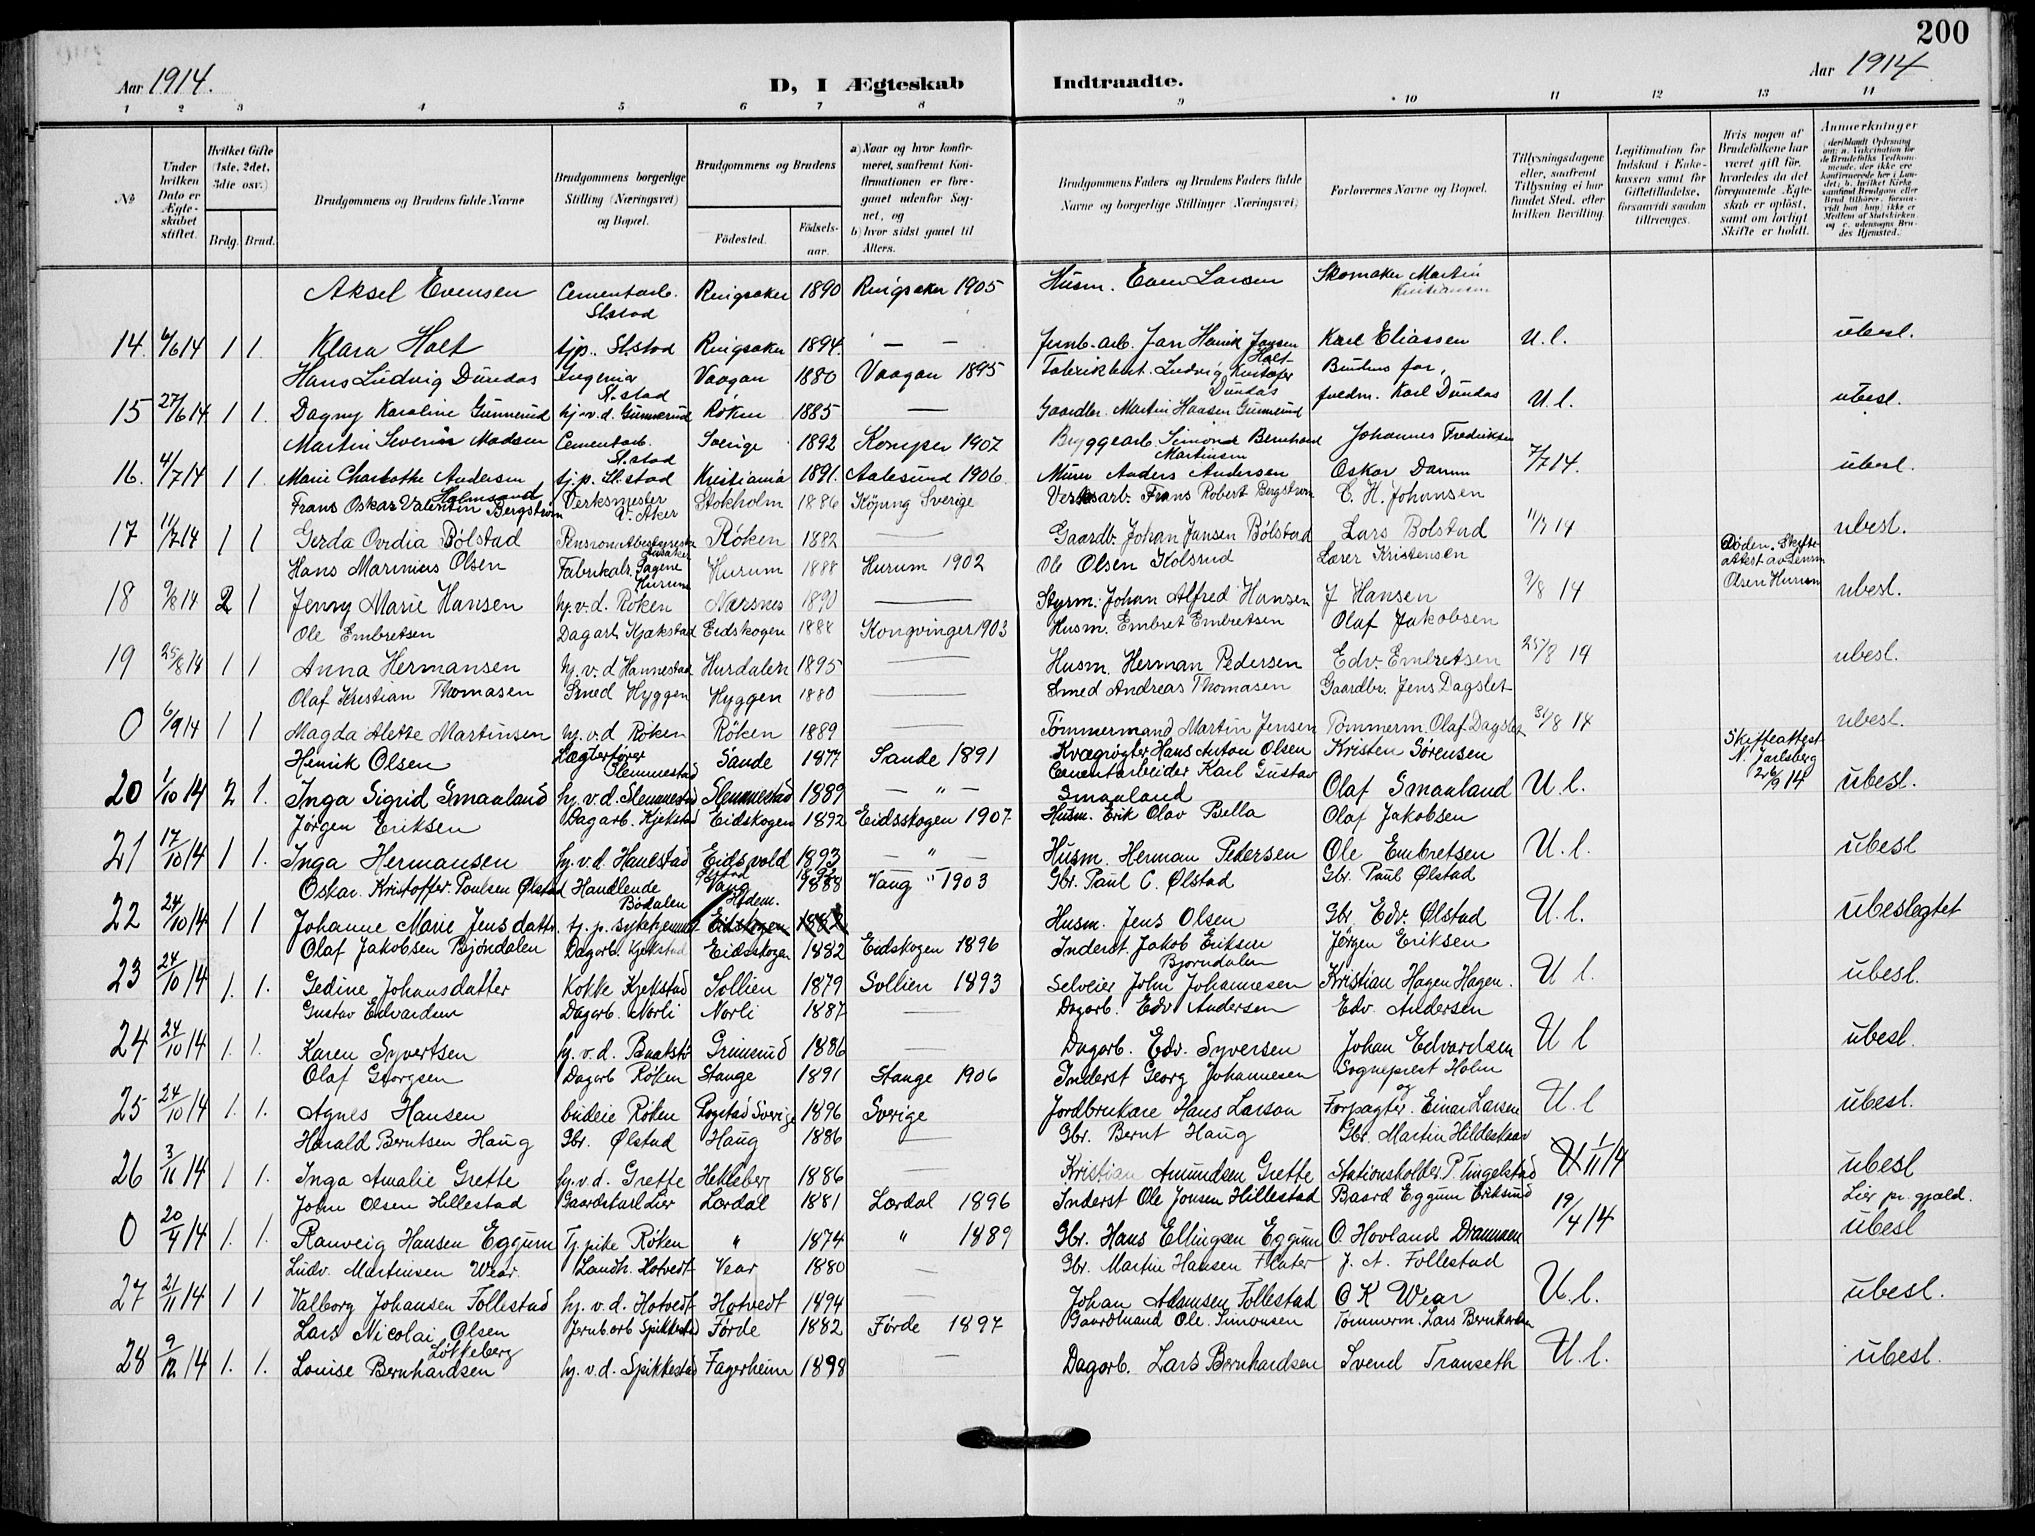 200
Aar 1914.
D, I Ægteskab Indtraadte.
Aar 1914
1 2 3 4 5 6 7 8 9 10 11 12 13 14
No
Under hvilken Dato er Ægteskabet stiftet.
Hvilket Gifte (1ste, 2det, 3die osv.)
Brdg. Brud.
Brudgommens og Brudens fulde Navne
Brudgommens borgerlige Stilling (Næringsvei) og Bopæl.
Brudgommens og Brudens
Fødested. Fødselsaar.
a) Naar og hvor konfirmeret, saafremt Konfirmationen er foregaaet udenfor Sognet, og
b) hvor sidst gaaet til Alters.
Brudgommens Faders og Brudens Faders fulde Navne og borgerlige Stillinger (Næringsvei)
Forlovernes Navne og Bopæl.
Tillysningsdagene eller, saafremt Tillysning ei har fundet Sted, efter hvilken Bevilling.
Legitimation for Indskud i Enkekassen samt for Giftetilladelse, forsaavidt saadan tiltrænges.
Hvis nogen af Brudefolkene har været gift før, hvorledes da det foregaaende Ægteskab er opløst, samt om lovligt Skifte er holdt.
Anmerkninger
Aksel Evensen Cementarb. Slstad Ringsaker 1890 Ringsaker 1905 Husm. Even Larsen Skomaker Martin Kristiansen
14. 6/6 14 1 1 Klara Holt tjp. Sl.stad Ringsaker 1894. — — Jernb-arb. Jan Henrik Jansen Holt Karl Eliassen U. l. ubesl.
Hans Ludvig Dundas Ingeniør Sl.stad Vaagan 1880 Vaagan 1895 Fabrikbest. Ludvig Kristofer Dundas Brudens far,
15 27/6 14 1 1. Dagny Karoline Gunnerud hj.v.d. Gunnerud Røken 1885 — Gaardbr. Martin Hansen Gunnerud fuldm. Karl Dundas U. l. ubesl.
Martin Severin Madsen Cementarb. Sl.stad Sverige 1892 Komper 1907 Bryggearb. Simond Bernhard Martinsen Johannes Fredriksen
16. 4/7 14 1 1 Marie Charlotte Andersen tj.p. Sl.stad Kristiania 1891. Aalesund 1906 Murer Anders Andersen Oskar Damm 7/7 14. ubesl.
Frans Oskar Valentin Holmsand Bergstrøm Verksmester V. Aker Stokholm 1886 Köping Sverige Verksarb. Frans Robert Bergstrøm C. H. Johansen
17 11/7 14 1 1 Gerda Ovidia Bølstad Røken 1882 — Gaardb. Johan Jansen Bølstad Lars Bølstad 11/7 14 ubesl.
Hans Marinius Olsen Fabrikarb. Sagene Hurum Hurum 1888 Hurum 1902 Ole Olsen Kolsrud Lærer Kristensen Døden. Skifteattest av Lensm. Olsen Hurum
18 9/8 14 2 1 Jenny Marie Hansen hj.v.d. Røken Nærsnes 1890 — Styrm. Johan Alfred Hansen J Hansen 9/8 14 ubesl.
Ole Embretsen Dagarb Kjækstad Eidskogen 1888 Kongvinger 1903 Husm. Embret Embretsen Olaf Jakobsen
19 25/8 14 1 1 Anna Hermansen hj. v. d Hannestad Hurdalen 1895 — Husm. Herman Pedersen Edv. Embretsen 25/8 14 ubesl.
Olaf Kristian Thomasen Smed Hyggen Hyggen 1880 — Smed Andreas Thomasen Gaardbr. Jens Dagslet
0 6/9 14 1 1 Magda Alette Martinsen hj. v.d Røken Røken 1889 — Tømmermand Martin Jensen Tømmerm. Olaf Dagslet 31/8 14 ubesl.
Henrik Olsen Lægterfører Slemmestad Sande 1877 Sande 1891 Kvægrøgter Hans Anton Olsen Kristen Sørensen Skifteattest N. Jarlsberg 26/9 14
20 1/10 14 2 1. Inga Sigrid Smaaland hj. v.d. Slemmestad Slemmestad 1889 — " — Cementarbeider Karl Gustav Smaaland Olaf Smaaland U l. ubesl.
Jørgen Eriksen Dagarb. Kjekstad Eidskogen 1892 Eidsskogen 1907 Husm. Erik Olav Bella Olaf Jakobsen
21 17/10 14 1 1. Inga Hermansen hj. v.d. Hanestad Eidsvold 1893 — " — Husm. Herman Pedersen Ole Embretsen U. l. ubesl
Oskar Kristoffer Poulsen Ølstad Handlende Bødalen Vang Hedm. 1888 Vang 1903 Gbr. Paul C. Ølstad Gbr. Paul Ølstad
22 24/10 14 1 1 Johanne Marie Jensdatter tj. p. Eidskogen 1882 Husm. Jens Olsen Gbr Edv. Ølstad U. l. ubeslegtet
Olaf Jakobsen Bjøndalen Dagarb. Kjekstad Eidsskogen 1882 Eidskogen 1896 Inderst. Jakob Eriksen Bjørndalen Jørgen Eriksen
23 24/10 14 1. 1. Gedine Johansdatter Kokke Kjekstad Sollien 1879 Sollien 1893 Selveier John Johannesen Kristian Hagen Hagen. U l. ubesl.
Gustav Edvardsen Dagarb. Norli Norli 1887 — Dagarb. Edv Andersen Edv. Andersen
24 24/10 14 1. 1. Karen Syvertsen hj. v. d. Baatstø Grimsrud 1886 — Dagarb. Edv. Syversen Johan Edvardsen U l ubesl.
Olaf Georgsen Dagarb Røken Stange 1891 Stange 1906 Inderst Georg Johannesen Sogneprest Holm og
25 24/10 14 1. 1. Agnes Hansen budeie Røken Sverige 1896 Sverige Jordbrukare Hans Larson Forpagter. Einar Larsen U. l ubesl.
Harald Berntsen Haug Gbr. Ølstad Haug 1886 — Gbr. Bernt Haug Gbr. Martin Hildeskaar
26 3/11 14 1 1. Inga Amalie Grette hj. v. d. Grette Hekleberg 1886 — Kristian Amundsen Grette Stationsholder P. Tingelstad U 1/11 14 ubesl
John Olsen Hillestad Gaardskarl Lier Lærdal 1881 Lærdal 1896 Inderst Ole Jonsen Hillestad Baard Eggum Eriksrud Lier pr. gjæld.
0 20/4 14 1. 1. Ranveig Hansen Eggum Tj.pike Røken " 1874 " 1889 Gbr. Hans Ellingsen Eggum O. Hovland Drammen 19/4 14 ubesl
Ludv. Martinsen Wear. Landh. Hotvedt Vear 1880 — Gbr. Martin Hansen Flater J. A. Follestad
27 21/11 14 1 1 Valborg Johansen Follestad hj. v. d. Hotvedt Hotvedt 1894 — Johan Adamsen Follestad O K Wear U. l. ubesl.
Lars Nicolai Olsen Løkkeberg Jernb.arb Spikkestad Førde 1882 Førde 1897 Gaardmand Ole Simonsen Tømmerm. Lars Bernhardsen
28 9/12 14 1. 1. Louise Bernhardsen hj. v. d. Spikkestad Fagerheim 1898 — Dagarb. Lars Bernhardsen Svend Transeth U. l. ubesl.